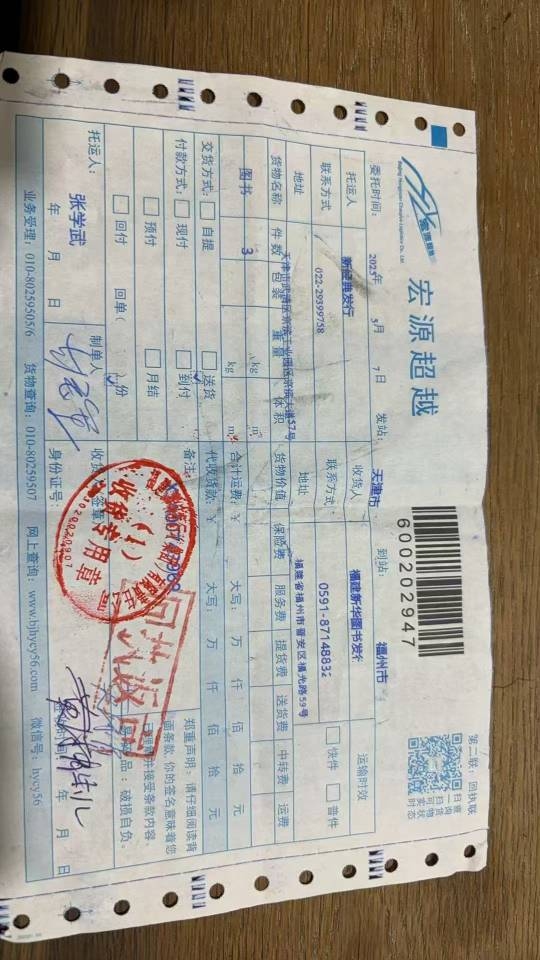 宏源超越
Beijing Hongyuan Chaoyue Logistics Co., Ltd.
600202947
第二联：回执联
扫一扫
委托时间： 2025年 3月 7日 发站： 天津市 到站： 福州市
托运人 新经典发行 收货人 福建新华图书发行 运输时效
联系方式 022-29399758 联系方式 0591-87148832 快件 普件
地址 天津市武清区京滨工业园区京滨大道57号 地址 福建省福州市晋安区福光路59号
货物名称 件数 包装 重量 体积 货物价值 保险费 服务费 提货费 送货费 中转费 运费
图书 3 kg m³
kg m³ 合计运费：¥ 大写： 万 仟 佰 拾 元
交货方式： 自提 送货 代收货款：¥ 大写： 万 仟 佰 拾 元
付款方式： 现付 到付 备注：
预付 月结
回付 回单（ ）份
郑重声明：请仔细阅读背
面条款 你的签名意味着您
已理解并接受条款内容。
易碎品：破损自负。
收货专用章
（1）
托运人： 张学武 制单人
年 月 日 身份证号： 年 月 日
业务受理：010-80259505/6 货物查询：010-80259507 网上查询：www.bjhycy56.com 微信号：hycy56